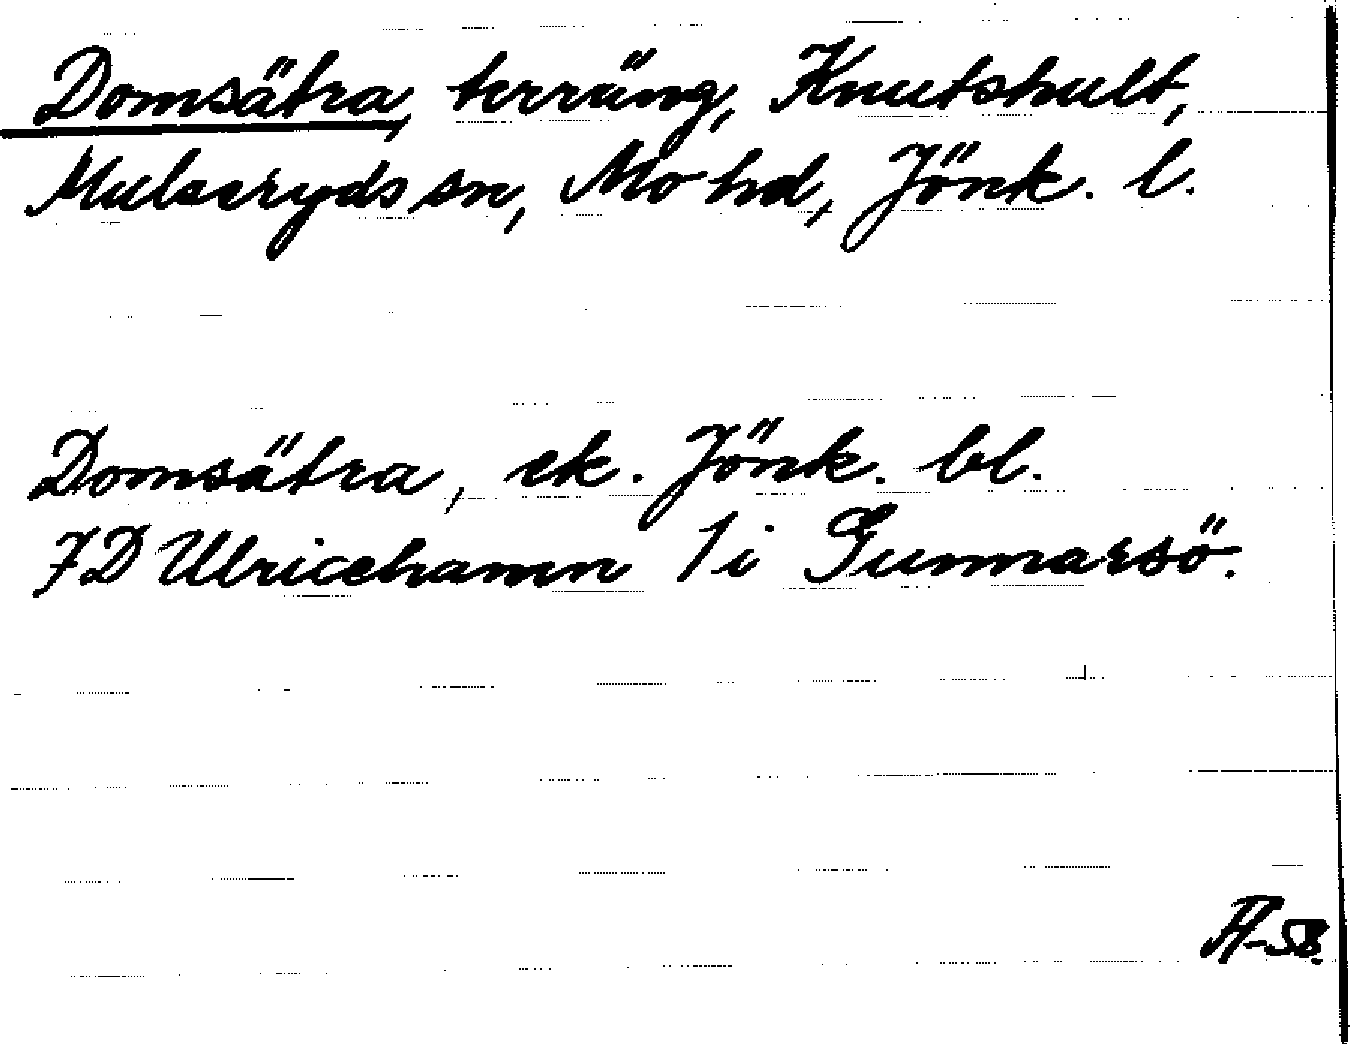 Domsätra, terräng, Knutshult,
Mulseryds sn, Mo hd, Jönk. l.
Domsätra, ek. Jönk. bl.
FD Ulricehamn 1 i Gunnarsö.